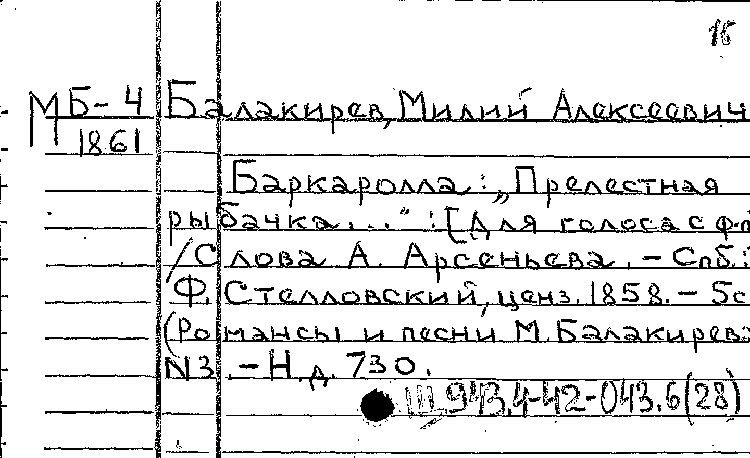 15
М Б-4 Балакирев, Милий Алексеевич
1861
Баркаролла: „Прелестная
рыбачка..." : [Для голоса с ф-п
/Слова А. Арсеньева. - Спб.:
Ф. Стелловский, ценз. 1858. - 5с
(Романсы и песни М. Балакирева
N3. - Н.д. 730.
Щ943.4-42-043.6(28)